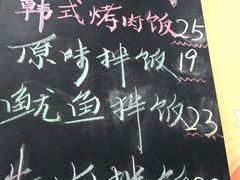 韩式烤肉饭25
原味拌饭19
鱿鱼拌饭23
拌饭